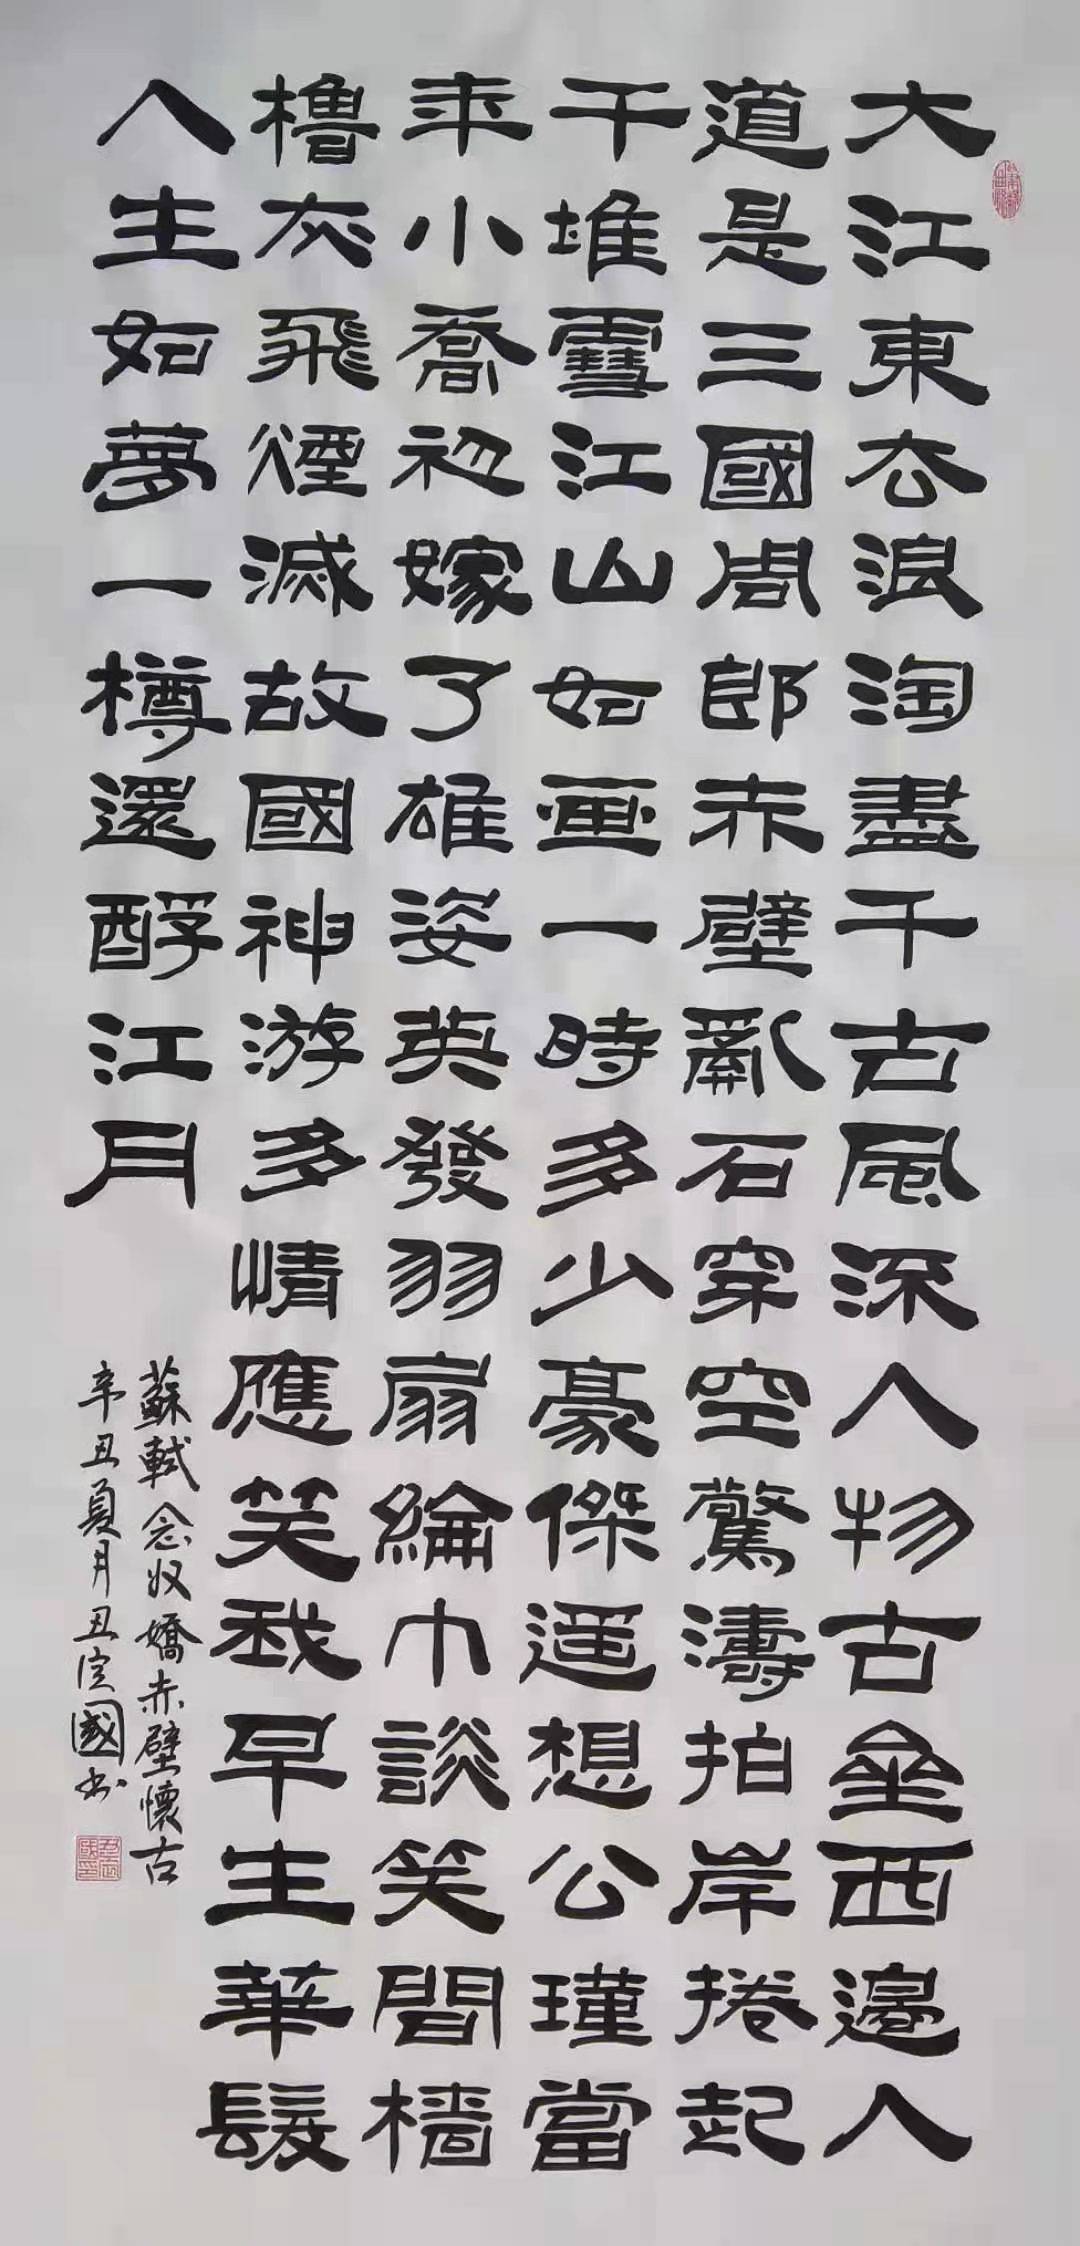 大江東去浪淘盡千古風流人物古垒西邊人
道是三國周郎赤壁亂石穿空驚濤拍岸捲起
千堆雪江山如画一時多少豪傑遥想公瑾當
年小喬初嫁了雄姿英發羽扇綸巾談笑間檣
櫓灰飛煙滅故國神游多情應笑我早生華髮
人生如夢一樽還酹江月
蘇軾念奴嬌赤壁懷古
辛丑夏月丑定國书